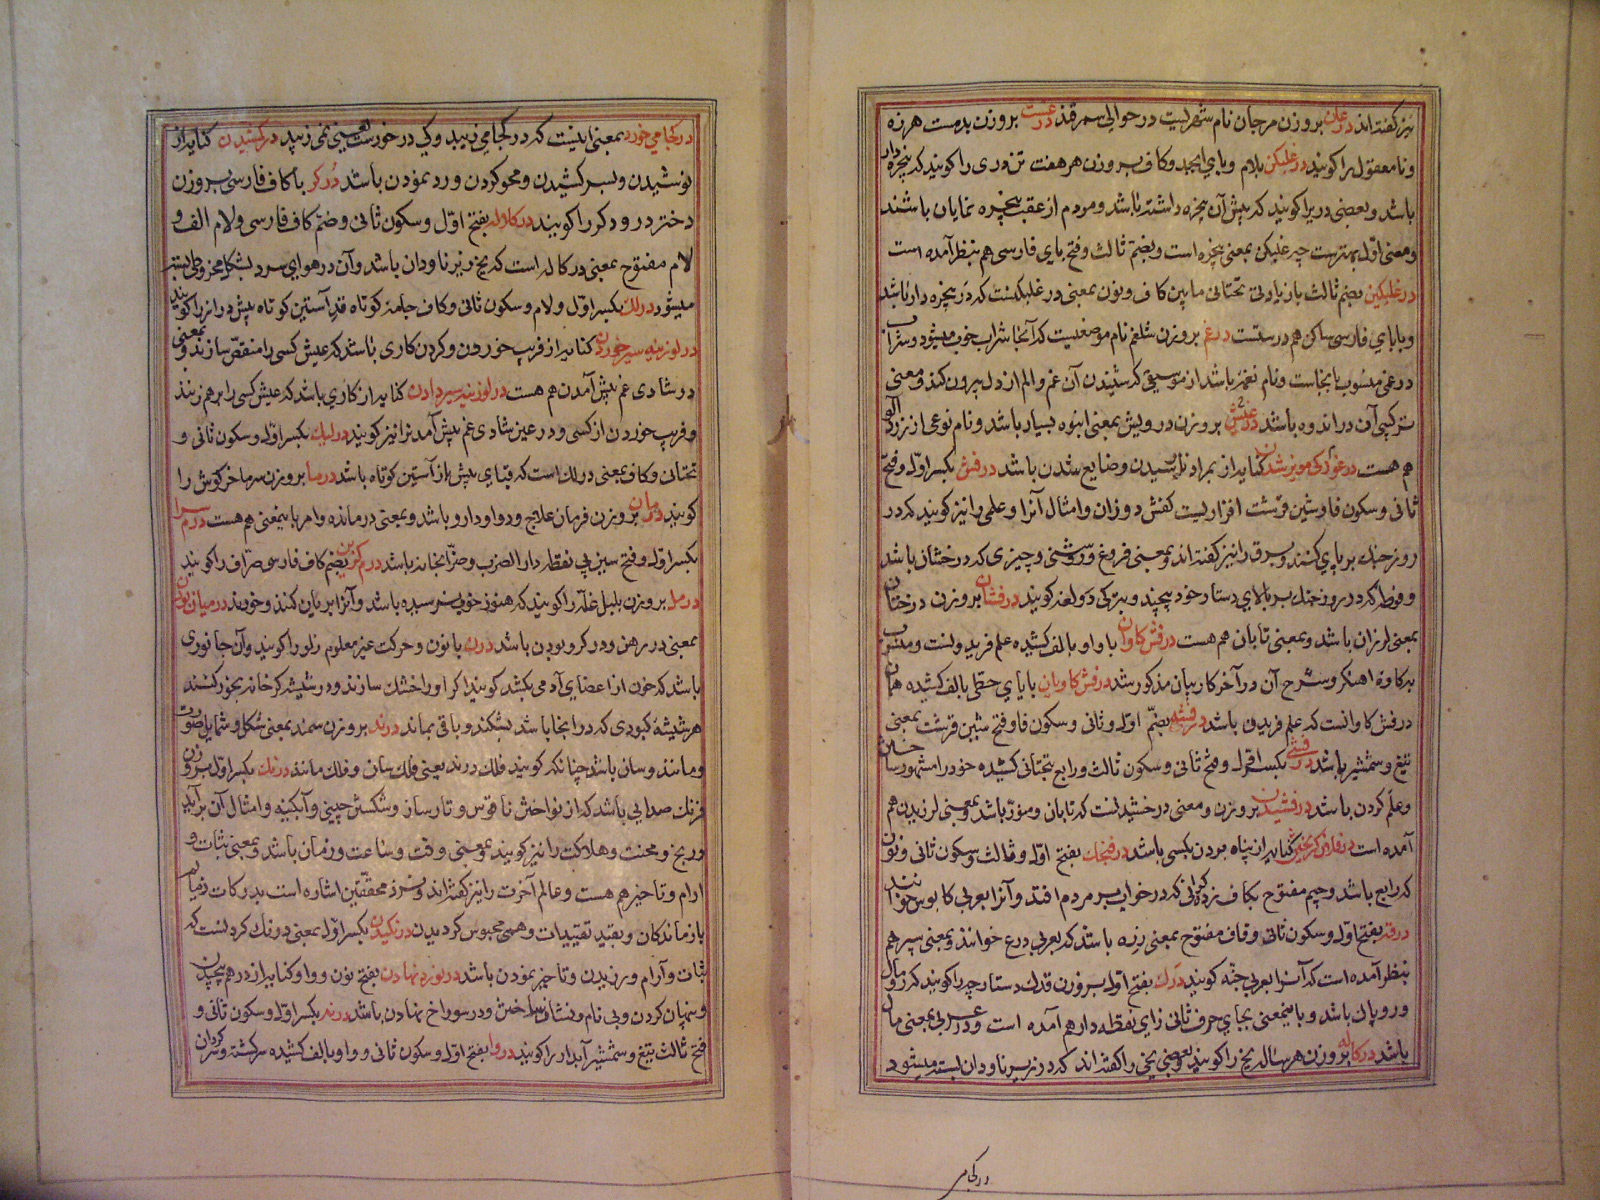 نیز گفته‌اند درغان بر وزن مرجان نام شهریست در حوالی سمرقند درغست بر وزن بدمست هرزه
و نامعقول را گویند درغلبکن بلام و بای ابجد و کاف بر وزن هر هفت تن دری را گویند که پنجره دار
باشد و بعضی دری را گویند که پیش آن پنجره داشته باشد و مردم از عقب پنجره نمایان باشند
و معنی اول بهترست چه غلبکن بمعنی پنجره است و بضم ثالث و فتح بای فارسی هم بنظر آمده است
درغلبکین بضم ثالث با زیادتی تحتانی مابین کاف و نون بمعنی درغلبکنست که در پنجره دار باشد
و با بای فارسی ساکن هم درستست درغم بر وزن شلغم نام موضعیست که آنجا شراب خوب میشود و شراب
درغمی منسوب بانجاست و نام نغمهٔ باشد از موسیقی که شنیدن آن غم و الم از دل بیرون کند و معنی
ترکیبی آن در اندوه باشد درغیش بر وزن درویش بمعنی انبوه بسیار باشد و نام نوعی از زردآلو
هم هست درغورگی مویز شدن کنایه از بمراد نارسیدن و ضایع شدن باشد درفش بکسر اول و فتح
ثانی و سکون فا و شین قرشت افزاریست کفش دوزان و امثال آنرا و علمی را نیز گویند که در
روز جنگ بر پای کنند و برق را نیز گفته‌اند و بمعنی فروغ و روشنی و چیزی که درخشان باشد
و فوطه که در روز جنگ بر بالای دستار خود پیچند و بترکی دولغه گویند درفشان بر وزن درختان
بمعنی لرزان باشد و بمعنی تابان هم هست درفش کاوان با واو بالف کشیده علم فریدونست و منسوب
به کاوه آهنگر و شرح آن در آخر کاویان مذکور شد درفش کاویان با یای حطی بالف کشیده همان
درفش کاوانست که علم فریدون باشد درفشه بضم اول و ثانی و سکون فا و فتح شین قرشت بمعنی
تیغ و شمشیر باشد درفشی بکسر اول و فتح ثانی و سکون ثالث و رابع بتحتانی کشیده خود را مشهور ساختن
و علم کردن باشد درفشیدن بر وزن و معنی درخشیدنست که تابان و منور باشد و بمعنی لرزیدن هم
آمده است در فلان گریختن کنایه از پناه بردن بکسی باشد درفنجک بفتح اول و ثالث و سکون ثانی و نون
که رابع باشد و جیم مفتوح بکاف زده گرانی که در خواب بر مردم افتد و آنرا بعربی کابوس خوانند
درقه بفتح اول و سکون ثانی و قاف مفتوح بمعنی زره باشد که بعربی درع خوانند و بمعنی سپر هم
بنظر آمده است که آنرا بعربی جنه گویند درک بفتح اول بر وزن فدک دستارچه را گویند که رومال
و روپاک باشد و باین معنی بجای حرف ثانی زای نقطه دار هم آمده است و در عربی بمعنی مان
باشد درکاله بر وزن هر ساله یخ را گویند و بعضی یخی را گفته‌اند که در زیر ناودان بسته میشود
درکجامی
در کجا می خورد بمعنی اینست که در کجا می زیبد و کی در خورست یعنی نمی زیبد درکشیدن کنایه از
نوشیدن و بسر کشیدن و محو کردن و رد نمودن باشد درگر با کاف فارسی بر وزن
دختر درودگر را گویند درکلاله بفتح اول و سکون ثانی و ضم کاف فارسی و لام الف و
لام مفتوح بمعنی درکاله است که یخ زیر ناودان باشد و آن در هوای سرد بشکل مخروطی بسته
میشود درلک بکسر اول و لام و سکون ثانی و کاف جامهٔ کوتاه قد آستین کوتاه پیش دراز را گویند
در لوزینه سیر خوردن کنایه از فریب خوردن و کردن کاری باشد که عیش کسی را منغص سازند و بمعنی
در شادی غم پیش آمدن هم هست در لوزینه سیر دادن کنایه از کاری باشد که عیش کسی را بر هم زنند
و فریب خوردن از کسی و در عین شادی غم پیش آمدنرا نیز گویند درلیک بکسر اول و سکون ثانی و
تحتانی و کاف بمعنی درلک است که قبای پیش باز آستین کوتاه باشد درما بر وزن سرما خرگوش را
گویند درمان بر وزن فرمان علاج و دوا و دارو باشد و بمعنی درمانده و امر باین معنی هم هست درم سرا
بکسر اول و فتح سین بی نقطه دارالضرب و ضرابخانه باشد درم گزین بضم کاف فارسی صراف را گویند
درمل بر وزن بلبل غله را گویند که هنوز خوب نرسیده باشد و آنرا بریان کنند و خورند درمیان بودن
بمعنی در رهن و در گرو بودن باشد درن با نون و حرکت غیر معلوم زلو را گویند و آن جانوری
باشد که خون از اعضای آدمی بکشد گویند اگر او را خشک سازند و در شیشه گر خانه بخور کنند
هر شیشهٔ کبودی که در آنجا باشد بشکند و باقی بماند درند بر وزن سمند بمعنی شکل و شمایل و صورت
و مانند و سان باشد چنانکه گویند فلک درند یعنی فلک سان و فلک مانند درنگ بکسر اول بر وزن
فرنگ صدایی باشد که از نواختن ناقوس و تار ساز و شکستن چینی و آبگینه و امثال آن بر آید
و رنج و محنت و هلاکت را نیز گویند و بمعنی وقت و ساعت و زمان باشد و بمعنی ثبات و
آرام و تاخیر هم هست و عالم آخرت را نیز گفته‌اند و نزد محققین اشاره است بدرکات زمانهٔ
بازماندگان و بقید تقییدات وهمی محبوس گردیدن درنگیدن بکسر اول بمعنی درنگ کردنست که
ثبات و آرام ورزیدن و تاخیر نمودن باشد در نورد نهادن بفتح نون و واو کنایه از در هم پیچیدن
و پنهان کردن و بی نام و نشان ساختن و در سوراخ نهادن باشد درنه بکسر اول و سکون ثانی و
فتح ثالث تیغ و شمشیر آبدار را گویند دروا بفتح اول و سکون ثانی و واو بالف کشیده سرگشته و سرگردان